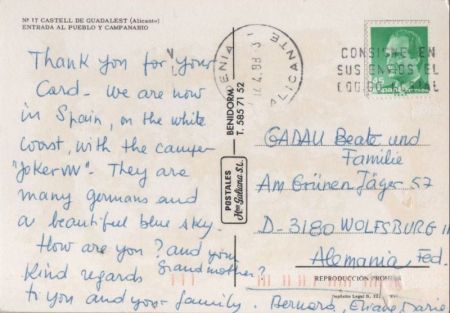 Nº 17 CASTELL DE GUADALEST (Alicante)
ENTRADA AL PUEBLO Y CAMPANARIO
Thank you for your
Card - We are now
in Spain, on the white
Coast, with the camper
"JokerVW". They are
many germans and
a beautiful blue sky.
How are you? and your
Grandmother?
Kind regards
to you and your family.
Bernard, Eliane Marie
BENIDORM
T. 585 71 52
POSTALES
Hnos Galiana S.L.
ALICANTE
CONSIGNE EN
SUS ENVIOS EL
GADAU Beate und
Familie
Am Grünen Jäger 57
D-3180 WOLFSBURG 11
Alemania Fed.
REPRODUCCIÓN PROHIBIDA